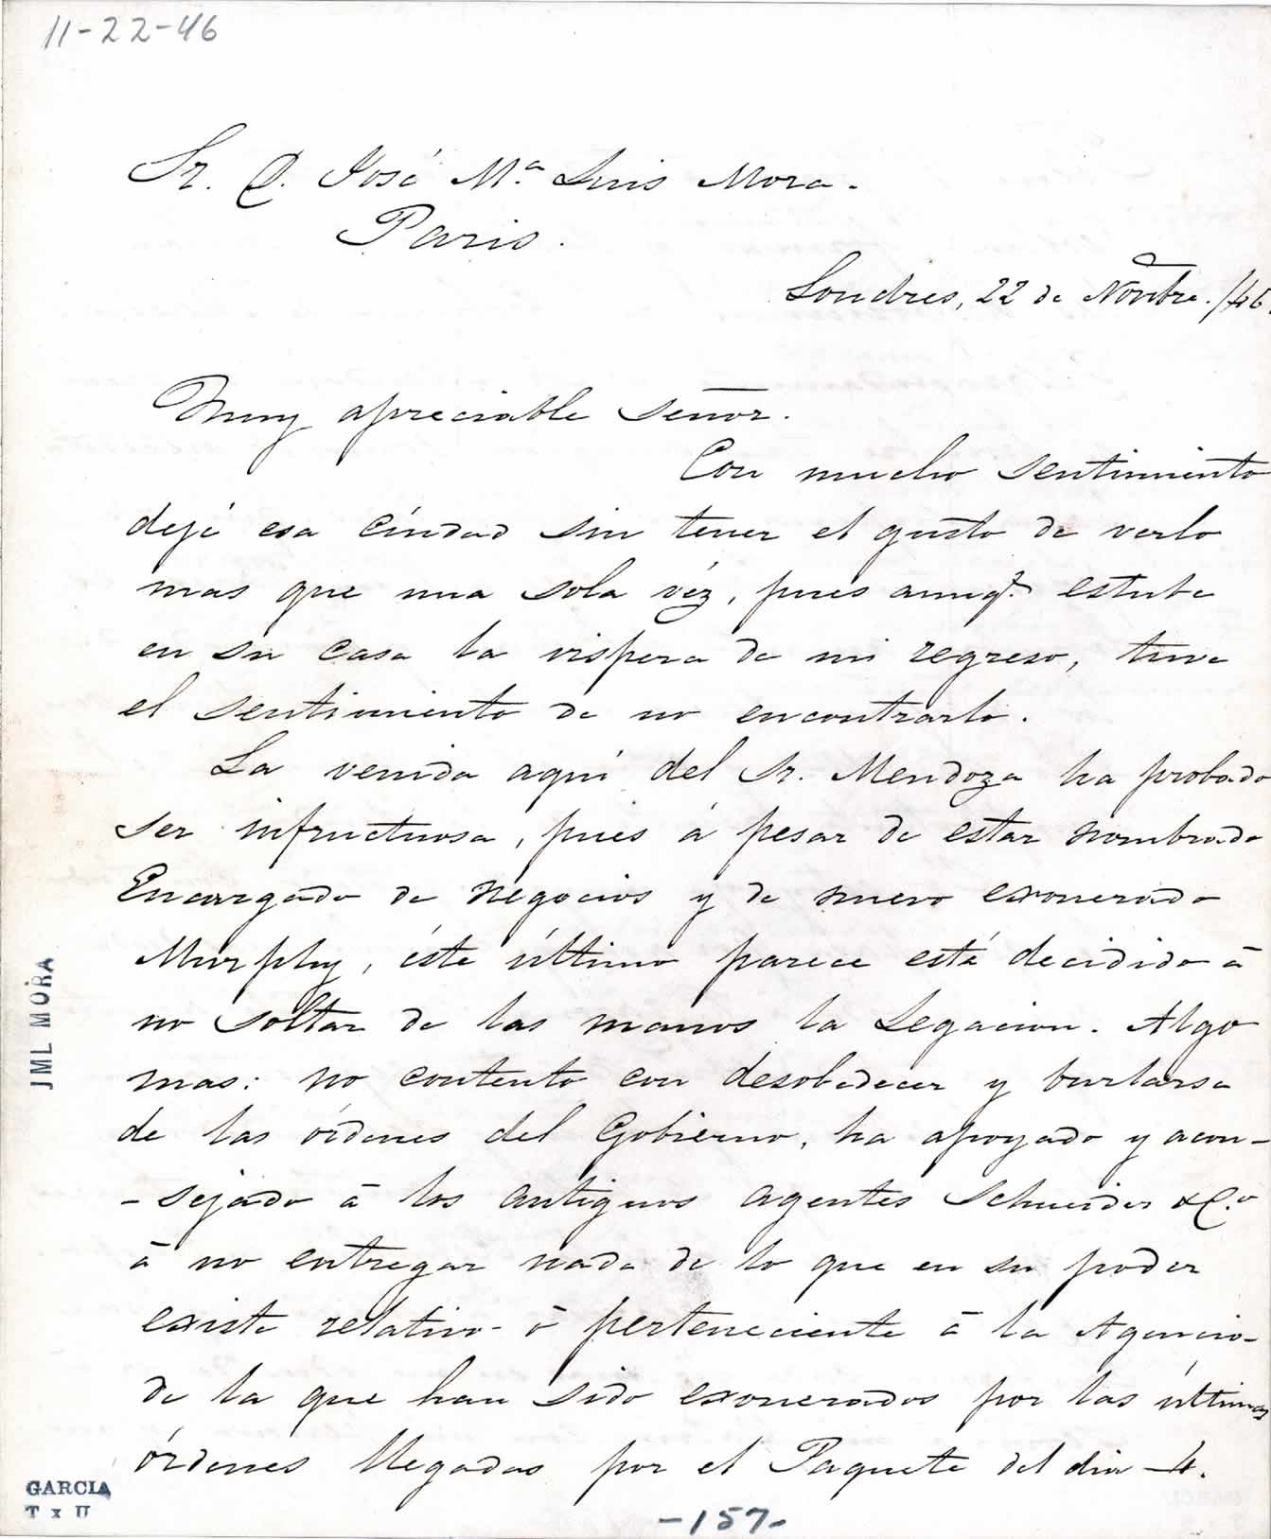 11-22-46
Sr. D. José Mª Luis Mora.
Paris.
Londres, 22 de Novbre. /46.
Muy apreciable señor.
Con mucho sentimiento
dejé esa ciudad sin tener el gusto de verlo
mas que una sola véz, pues aunq.e estube
en su casa la vispera de mi regreso, tuve
el sentimiento de no encontrarlo.
La venida aquí del Sr. Mendoza ha probado
ser infructuosa, pues á pesar de estar nombrado
Encargado de Negocios y de nuevo exonerado
Murphy, éste último parece está decidido á
no soltar de las manos la Legacion. Algo
mas: no contento con desobedecer y burlarse
de las órdenes del Gobierno, ha apoyado y acon-
-sejado á los antiguos agentes Schneider &C.º
á no entregar nada de lo que en su poder
existe relativo ó perteneciente á la Agencia
de la que han sido exonerados por las últimas
órdenes llegadas por el Paquete del dia 4.
-157-
JML MORA
GARCIA
T x U